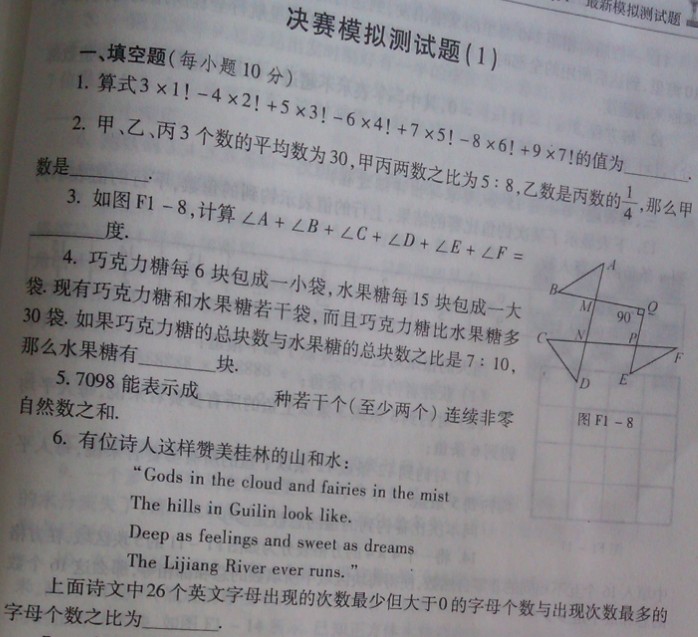 最新模拟测试题
决赛模拟测试题(1)
一、填空题(每小题10分)
1. 算式3×1!-4×2!+5×3!-6×4!+7×5!-8×6!+9×7!的值为______.
2. 甲、乙、丙3个数的平均数为30,甲丙两数之比为5:8,乙数是丙数的1/4,那么甲
数是______.
3. 如图F1-8,计算∠A+∠B+∠C+∠D+∠E+∠F=
______度.
4. 巧克力糖每6块包成一小袋,水果糖每15块包成一大
袋.现有巧克力糖和水果糖若干袋,而且巧克力糖比水果糖多
30袋.如果巧克力糖的总块数与水果糖的总块数之比是7:10,
那么水果糖有______块.
5.7098能表示成______种若干个(至少两个)连续非零
自然数之和.
A
B
M
Q
90°
C
N
P
F
D
E
图F1-8
6. 有位诗人这样赞美桂林的山和水:
“Gods in the cloud and fairies in the mist
The hills in Guilin look like.
Deep as feelings and sweet as dreams
The Lijiang River ever runs.”
上面诗文中26个英文字母出现的次数最少但大于0的字母个数与出现次数最多的
字母个数之比为______.